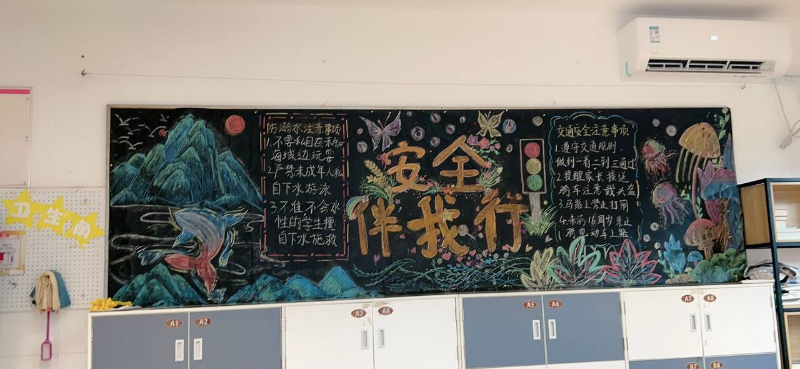 卫生角
防溺水注意事项
1.不要私自在未知
海域边玩耍
2.严禁未成年人私
自下水游泳
3.不准不会水
性的学生擅
自下水施救
安全
伴我行
交通安全注意事项
1.遵守交通规则,
做到一看二列三通过
2.提醒家长接送
骑车注意戴头盔
3.马路上禁止打闹
4.未满16周岁禁止
骑电动车上路
A1
A2
A3
A4
A5
A6
A7
A8
B7
B8